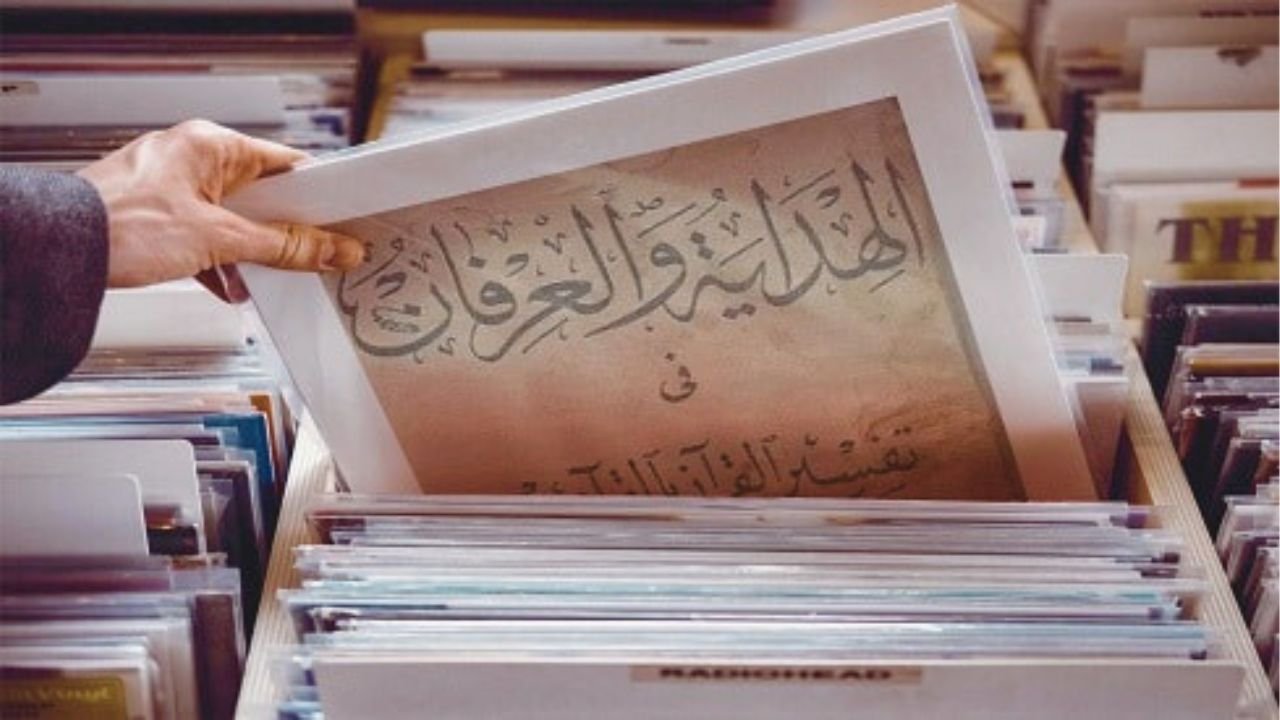 الهِدَايَةُ وَالْعِرْفَانُ
في
تفسير القرآن بالقرآن
TH
RADIOHEAD